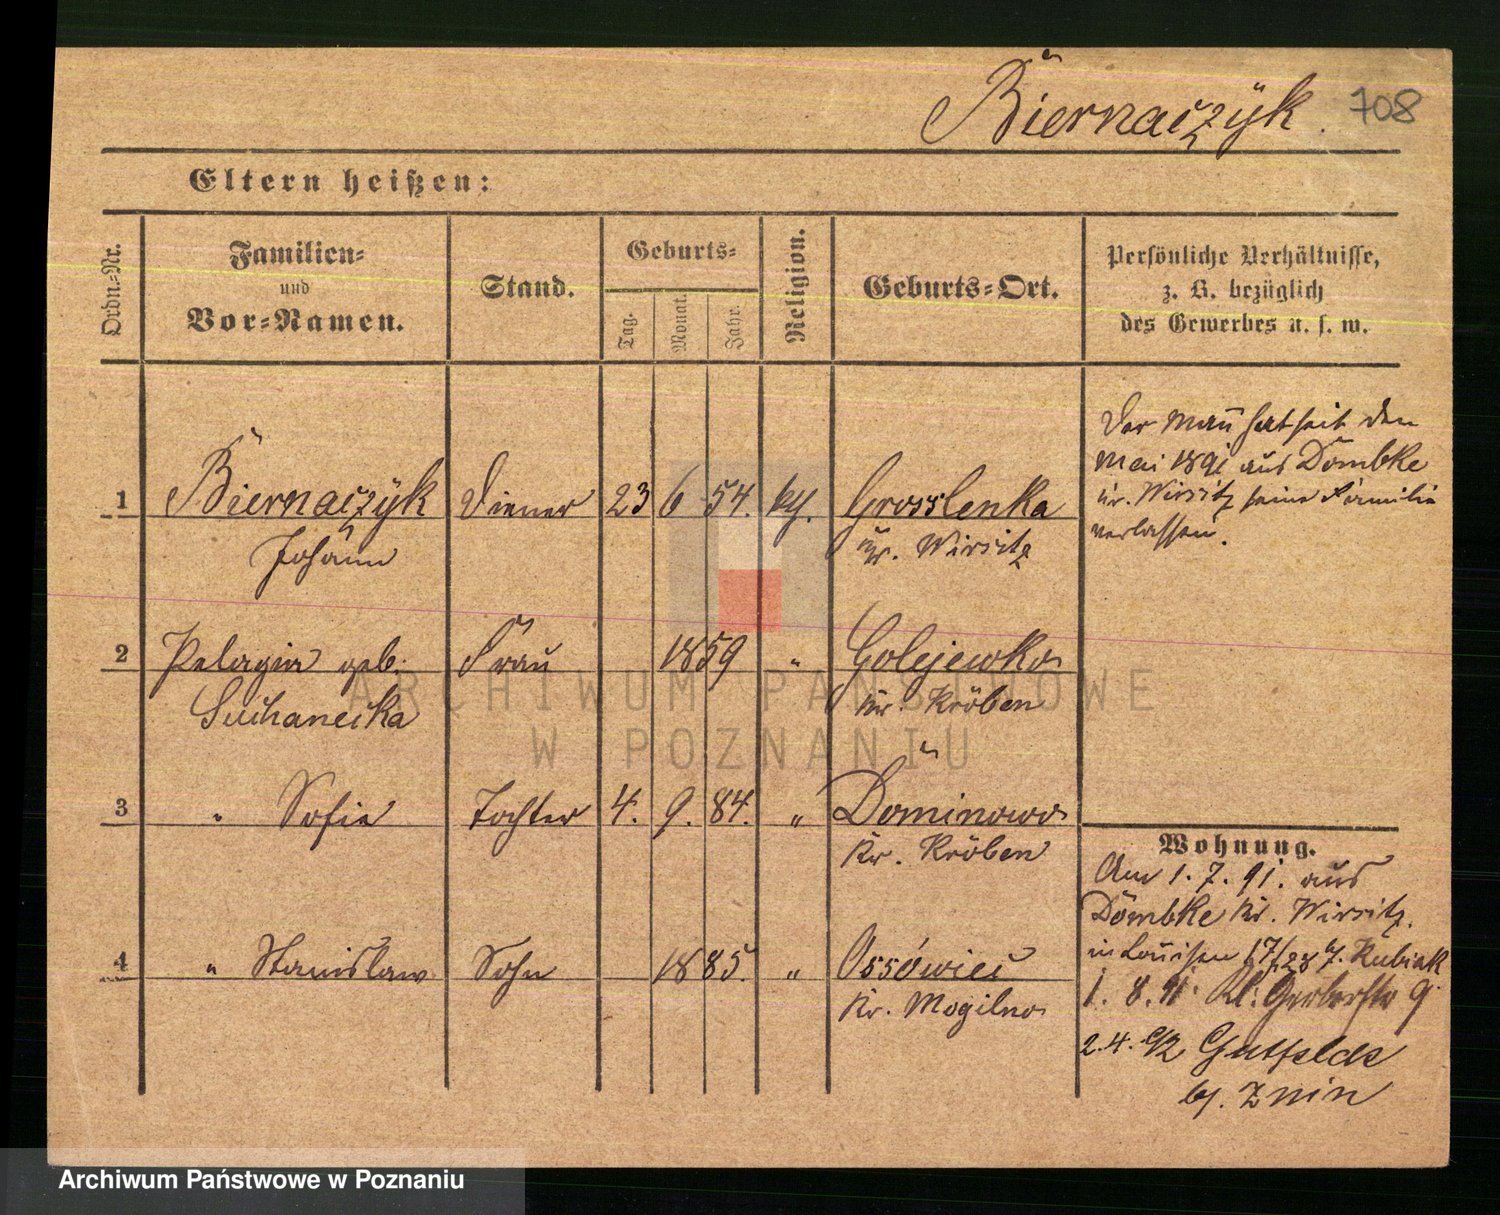 Biernaczyk. 708
Eltern heißen:
Ordn.-Nr.
Familien-
und
Vor-Namen.
Stand.
Geburts-
Tag.
Monat.
Jahr.
Religion.
Geburts-Ort.
Persönliche Verhältnisse,
z. B. bezüglich
des Gewerbes u. s. w.
Der Mann hat seit dem
Mai 1891 aus Dombke
Kr. Wirsitz seine Familie
verlassen.
1 Biernaczyk Diener 23 6 54. Grosslenka
Johann Kr. Wirsitz
2 Pelagia geb. Frau 1859 " Golejewko
Suchanecka Kr. Kröben
3 " Sofie Tochter 4. 9. 84. " Dominowo
Kr. Kröben
4 " Stanislaw Sohn 1885. " Ossowiec
Kr. Mogilno
Wohnung.
Am 1. 7. 91. aus
Dombke Kr. Wirsitz.
in Louisen 17/28 b/. Kubiak
1. 8. 91. Kl. Gerberstr 9.
2. 4. 92 Gutfelde
b/. Znin
ARCHIWUM PAŃSTWOWE
W POZNANIU
Archiwum Państwowe w Poznaniu